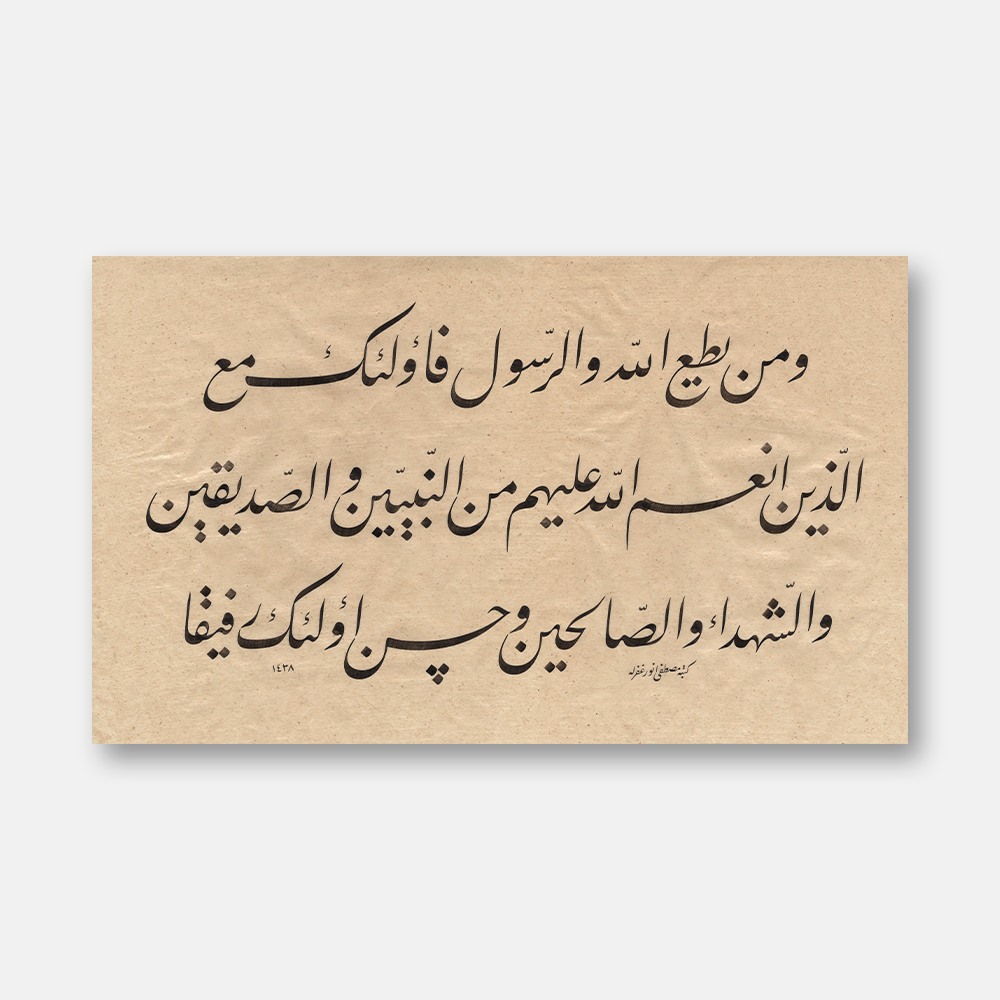 ومن يطع الله والرّسول فاؤلئك مع
الّذين انعم الله عليهم من النّبيّين و الصّديقين
والشّهداء والصّالحين وحسن اؤلئك رفيقا
كتبه مصطفى انور غفرله
١٤٣٨